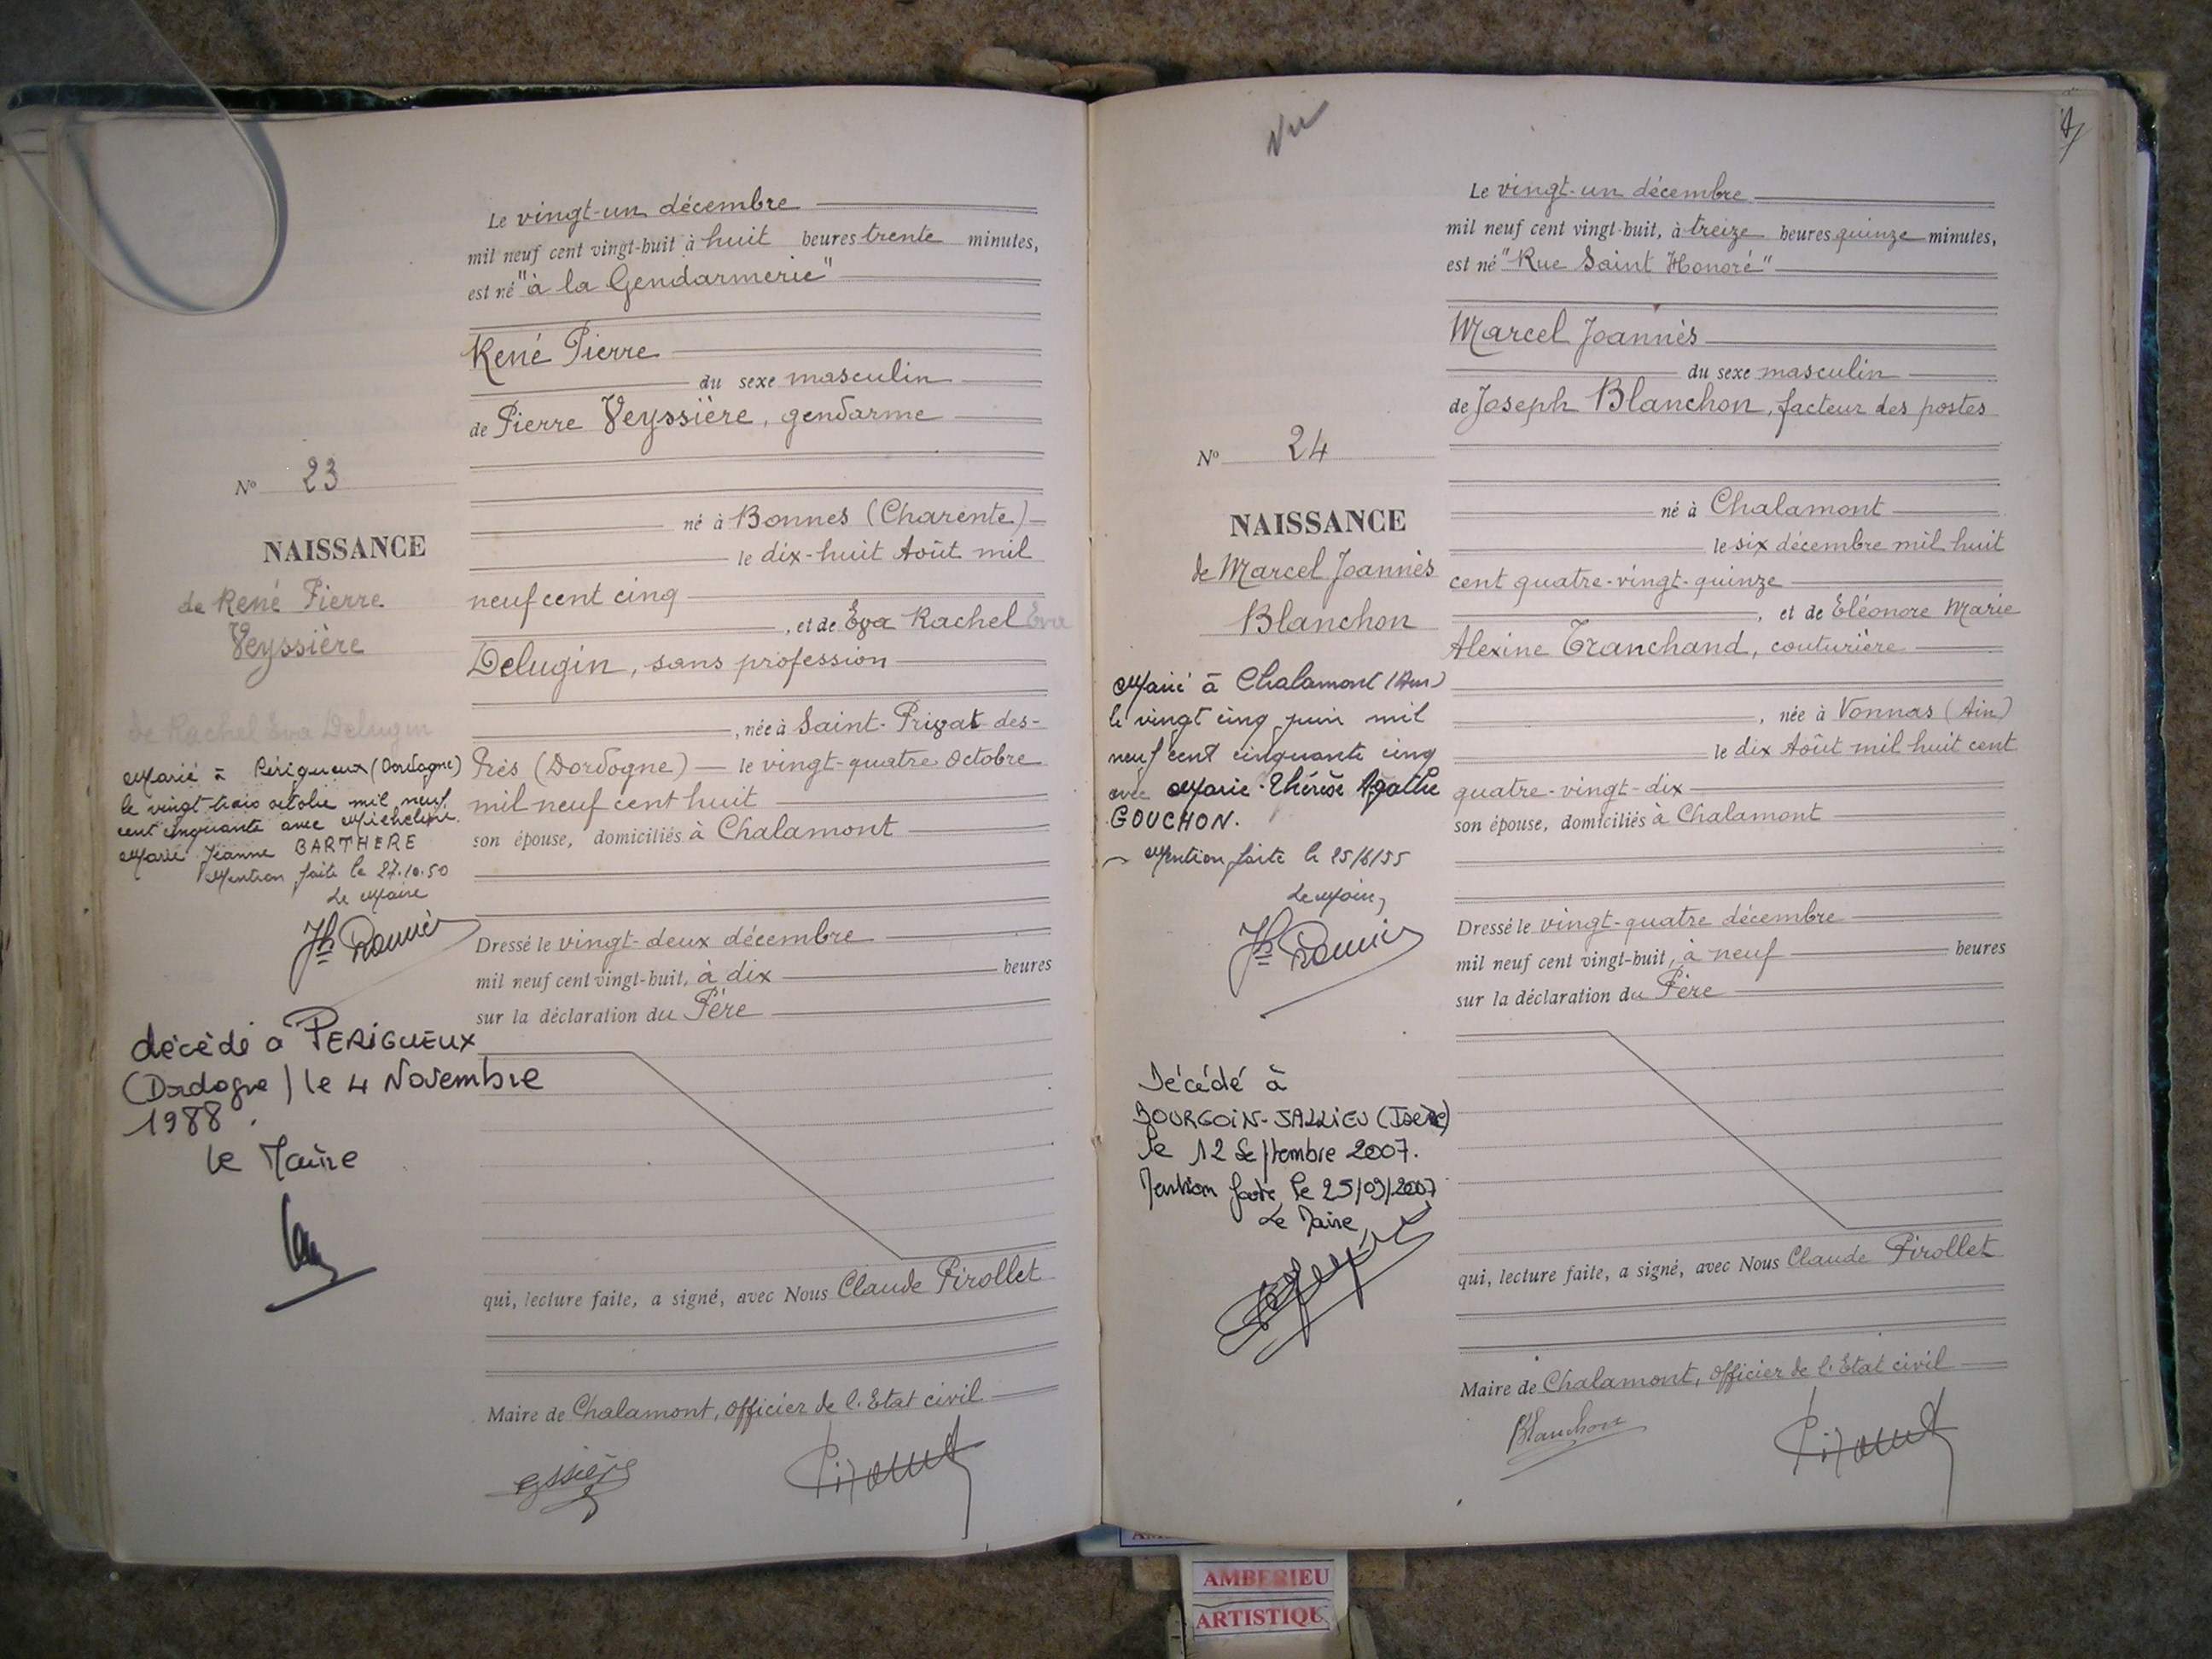 Le vingt-un décembre
mil neuf cent vingt-huit à huit heures trente minutes,
est né "à la Gendarmerie"
René Pierre
du sexe masculin
de Pierre Veyssière, gendarme
né à Bonnes (Charente)
le dix-huit Août mil
neuf cent cinq
, et de Eva Rachel Eva
Delugin, sans profession
, née à Saint-Privat-des-
Prés (Dordogne) — le vingt-quatre Octobre
mil neuf cent huit
son épouse, domiciliés à Chalamont
Dressé le vingt-deux décembre
mil neuf cent vingt-huit, à dix heures
sur la déclaration du Père
qui, lecture faite, a signé, avec Nous Claude Pirollet
Maire de Chalamont, Officier de l'Etat civil
Nº 23
NAISSANCE
de René Pierre
Veyssière
de Rachel Eva Delugin
Marié à Périgueux (Dordogne)
le vingt-trois octobre mil neuf
cent cinquante avec Micheline
Marie Jeanne BARTHERE
Mention faite le 27.10.50
Le Maire
décédé à PERIGUEUX
(Dordogne) le 4 Novembre
1988.
le Maire
Vu
Le vingt-un décembre
mil neuf cent vingt-huit, à treize heures quinze minutes,
est né "Rue Saint Honoré"
Marcel Joannès
du sexe masculin
de Joseph Blanchon, facteur des postes
né à Chalamont
le six décembre mil huit
cent quatre-vingt-quinze
, et de Eléonore Marie
Alexine Tranchand, couturière
, née à Vonnas (Ain)
le dix Août mil huit cent
quatre-vingt-dix
son épouse, domiciliés à Chalamont
Dressé le vingt-quatre décembre
mil neuf cent vingt-huit, à neuf heures
sur la déclaration du Père
qui, lecture faite, a signé, avec Nous Claude Pirollet
Maire de Chalamont, Officier de l'Etat civil
Blanchon
Nº 24
NAISSANCE
de Marcel Joannès
Blanchon
Marié à Chalamont (Ain)
le vingt cinq juin mil
neuf cent cinquante cinq
avec Marie-Thérèse Agathe
GOUCHON.
Mention faite le 25/6/55
Le Maire,
Décédé à
BOURGOIN-JALLIEU (Isère)
le 12 Septembre 2007.
Mention faite le 25/09/2007
Le Maire,
AMBERIEU
ARTISTIQU